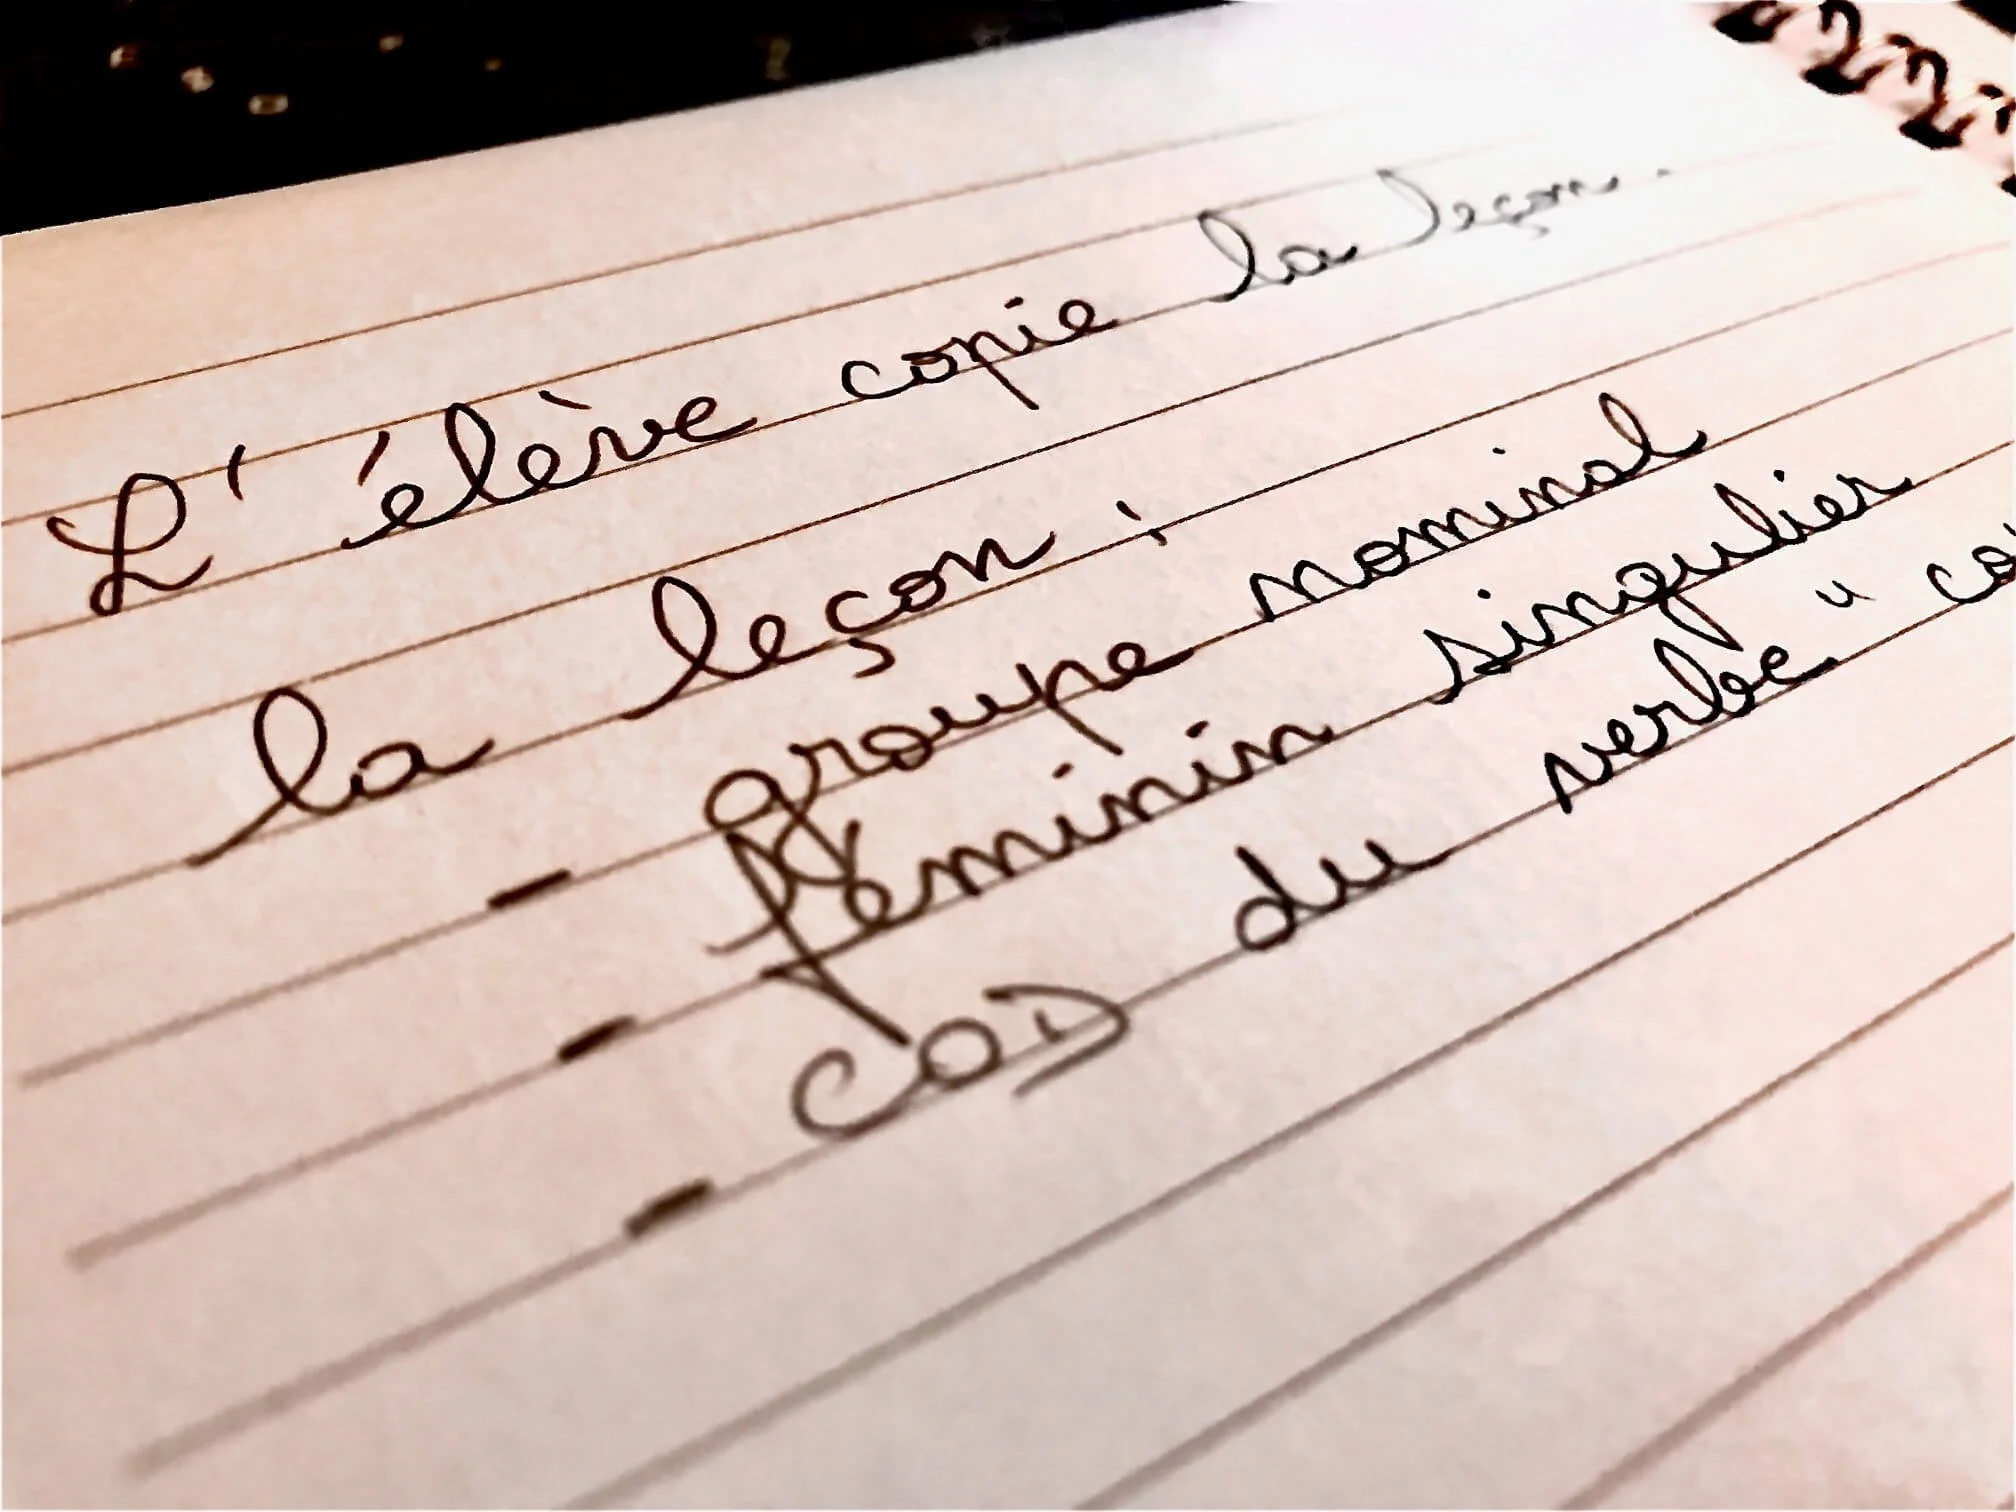 L'élève copie la leçon.
la leçon :
- groupe nominal
- féminin singulier
- COD du verbe " co